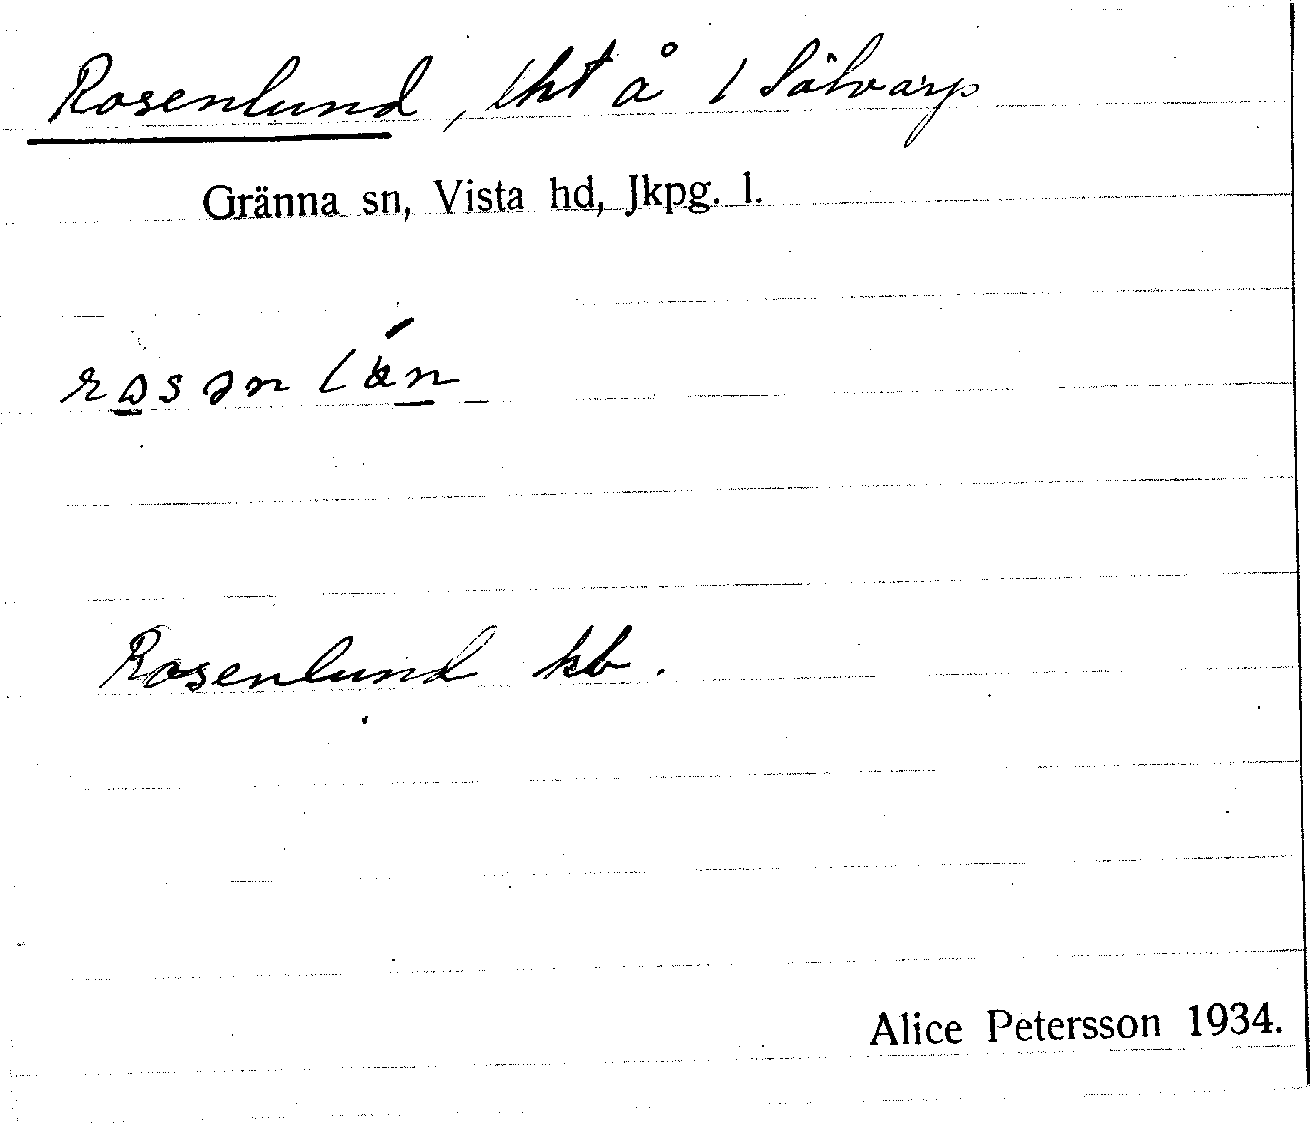 Rosenlund, lht å 1 Sålvarp
Gränna sn, Vista hd, Jkpg. l.
Rosenlund kb.
Alice Petersson 1934.